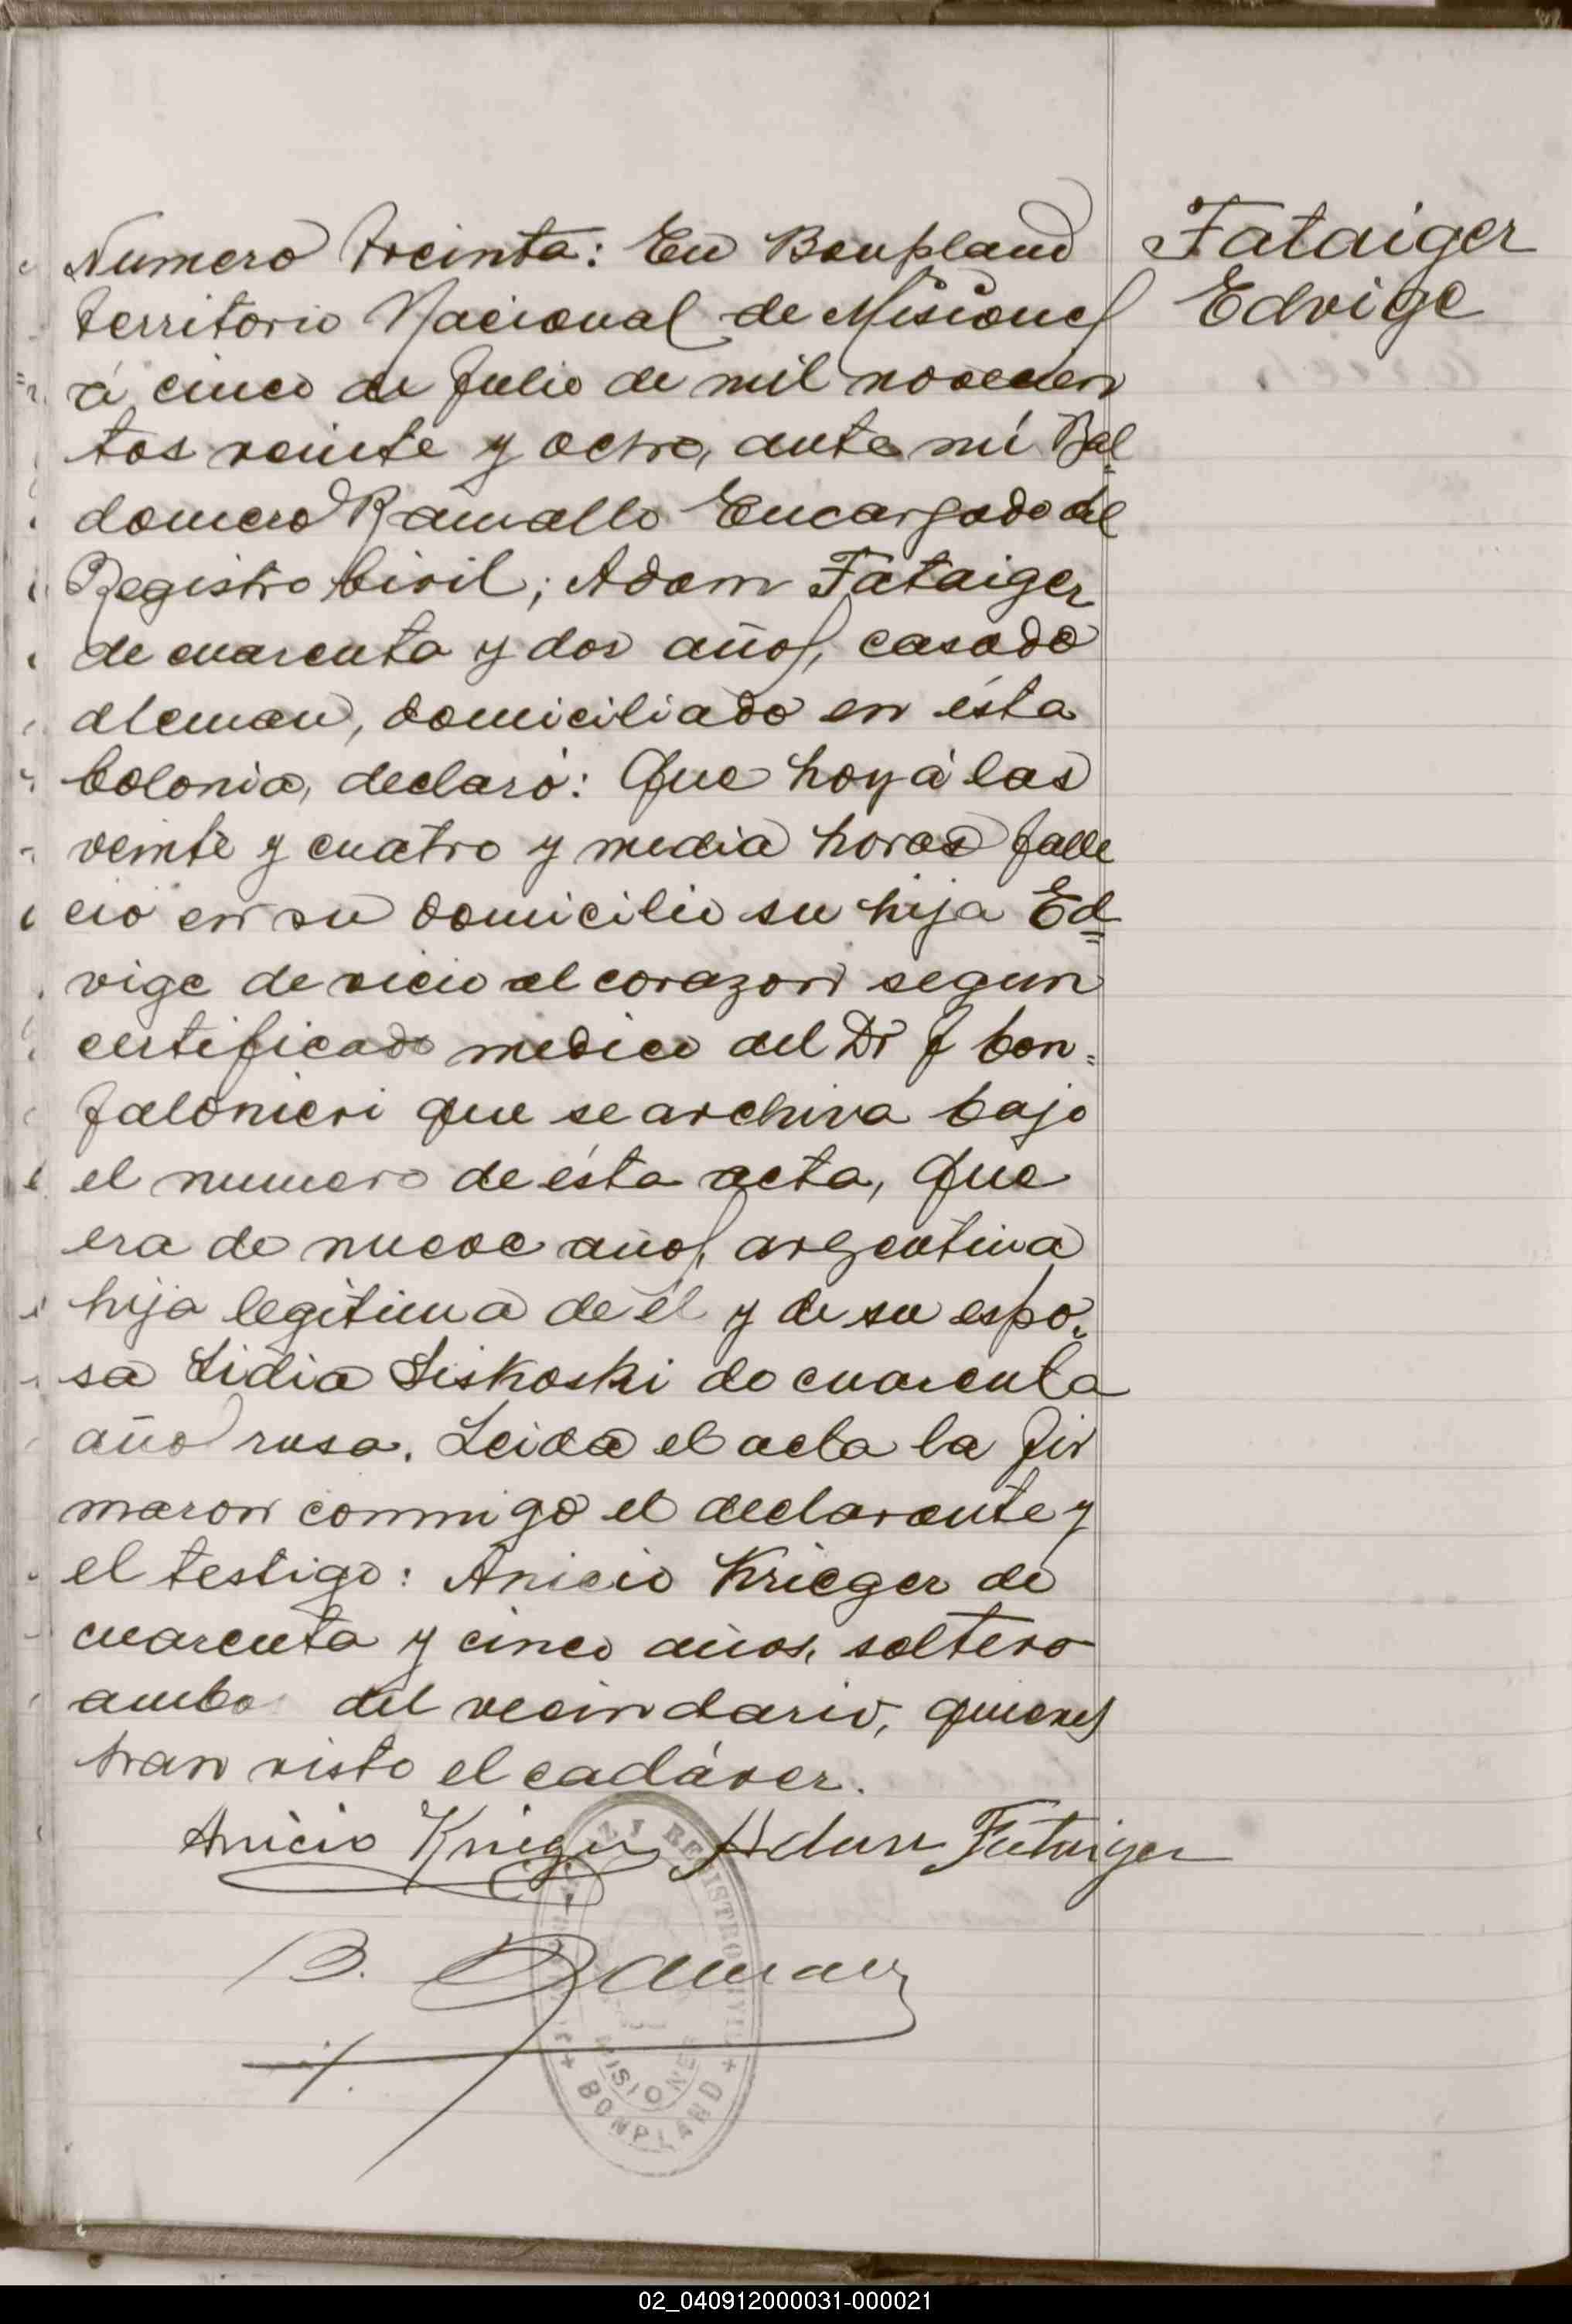 Fataiger
Edvige
Numero treinta: En Bonpland
territorio Nacional de Misiones
á cinco de Julio de mil novecien
tos veinte y ocho, ante mí Bal=
domero Ramallo Encargado del
Registro Civil; Adam Fataiger
de cuarenta y dos años, casado
aleman, domiciliado en ésta
Colonia, declaró: Que hoy á las
veinte y cuatro y media horas falle
ció en su domicilio su hija Ed=
vige de vicio al corazon segun
certificado medico del Dr J Con=
falonieri que se archiva bajo
el numero de ésta acta, que
era de nueve años, argentina
hija legítima de él y de su espo=
sa Lidia Liskoski de cuarenta
año rusa. Leida el acta la fir
maron conmigo el declarante y
el testigo: Anicio Krieger de
cuarenta y cinco años, soltero
ambo del vecindario, quienes
han visto el cadáver.
Anicio Krieger Adam Fataiger
B. Ramallo
REGISTRO CIVIL
MISIONES
+ BOMPLAND +
02_040912000031-000021